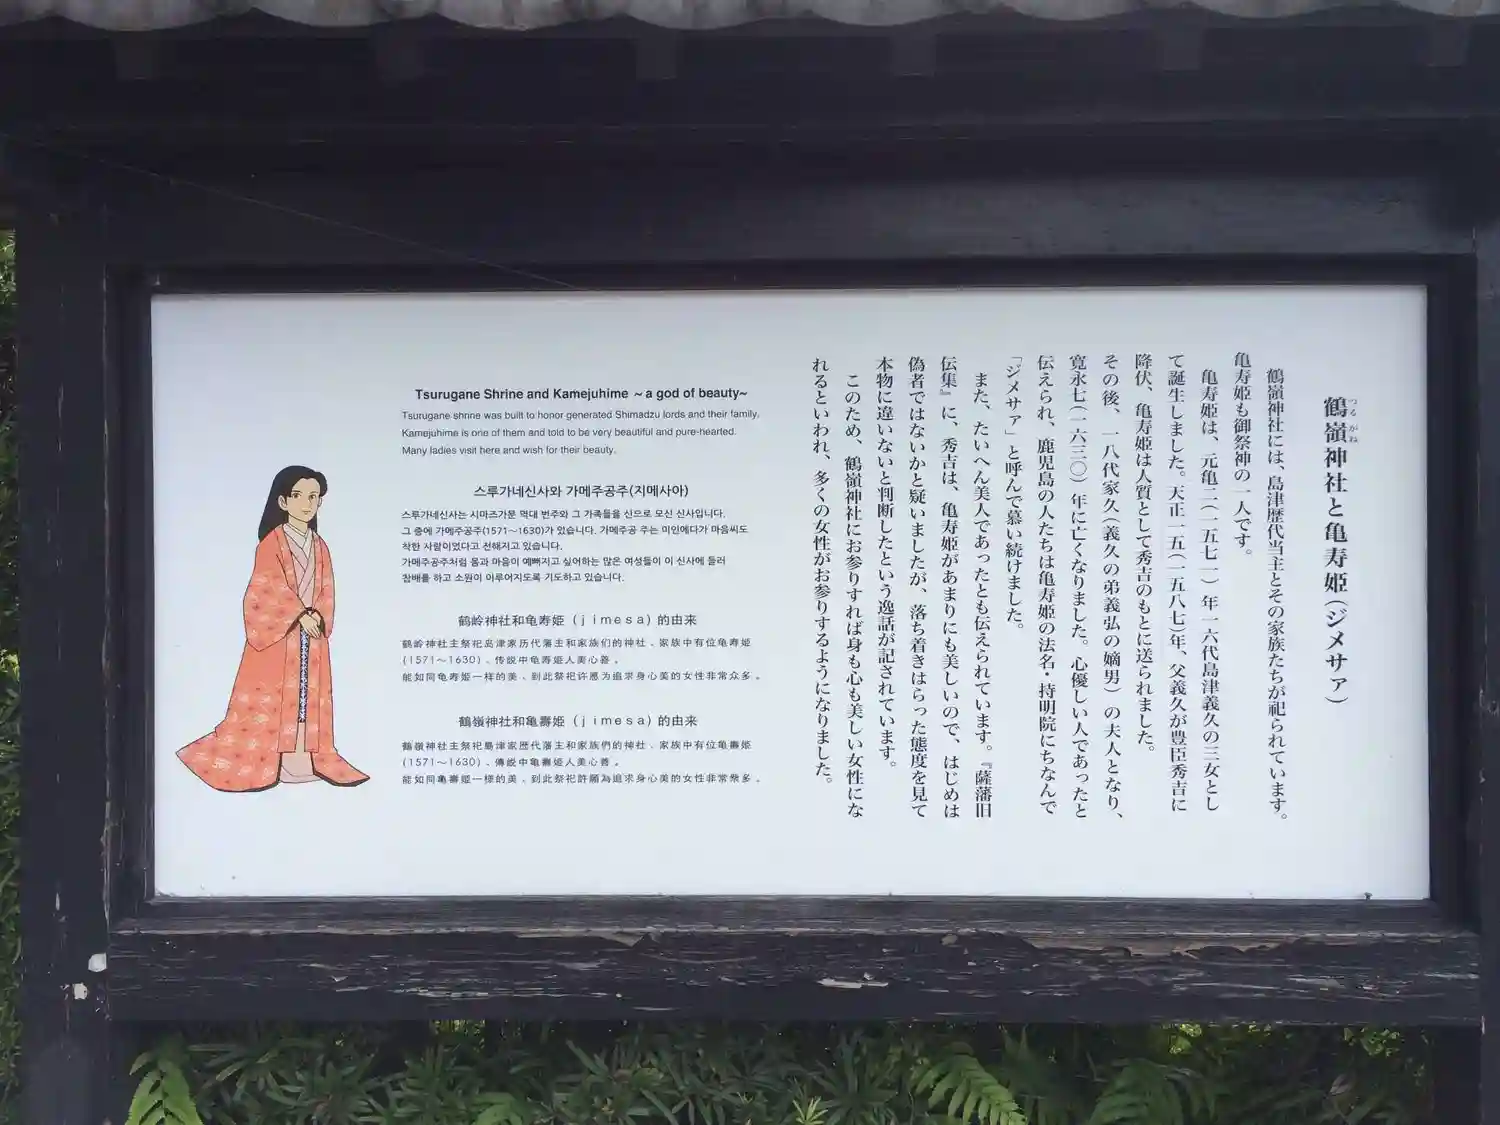 鶴嶺神社と亀寿姫(ジメサァ)
つるがね
鶴嶺神社には、島津歴代当主とその家族たちが祀られています。
亀寿姫も御祭神の一人です。
亀寿姫は、元亀二(一五七一)年一六代島津義久の三女とし
て誕生しました。天正一五(一五八七)年、父義久が豊臣秀吉に
降伏、亀寿姫は人質として秀吉のもとに送られました。
その後、一八代家久(義久の弟義弘の嫡男)の夫人となり、
寛永七(一六三〇)年に亡くなりました。心優しい人であったと
伝えられ、鹿児島の人たちは亀寿姫の法名・持明院にちなんで
「ジメサァ」と呼んで慕い続けました。
また、たいへん美人であったとも伝えられています。『薩藩旧
伝集』に、秀吉は、亀寿姫があまりにも美しいので、はじめは
偽者ではないかと疑いましたが、落ち着きはらった態度を見て
本物に違いないと判断したという逸話が記されています。
このため、鶴嶺神社にお参りすれば身も心も美しい女性にな
れるといわれ、多くの女性がお参りするようになりました。
Tsurugane Shrine and Kamejuhime ～a god of beauty~
Tsurugane shrine was built to honor generated Shimadzu lords and their family.
Kamejuhime is one of them and told to be very beautiful and pure-hearted.
Many ladies visit here and wish for their beauty.
스루가네신사와 가메주공주(지메사아)
스루가네신사는 시마즈가문 역대 번주와 그 가족들을 신으로 모신 신사입니다.
그 중에 가메주공주(1571～1630)가 있습니다. 가메주공 주는 미인에다가 마음씨도
착한 사람이었다고 전해지고 있습니다.
가메주공주처럼 몸과 마음이 예뻐지고 싶어하는 많은 여성들이 이 신사에 들러
참배를 하고 소원이 이루어지도록 기도하고 있습니다.
鹤岭神社和龟寿姬 (jimesa) 的由来
鹤岭神社主祭祀岛津家历代藩主和家族们的神社、家族中有位龟寿姬
(1571～1630)、传说中龟寿姬人美心善。
能如同龟寿姬一样的美、到此祭祀许愿为追求身心美的女性非常众多。
鶴嶺神社和亀壽姫 (jimesa) 的由来
鶴嶺神社主祭祀島津家歴代藩主和家族們的神社、家族中有位亀壽姫
(1571～1630)、傳說中亀壽姫人美心善。
能如同亀壽姫一樣的美、到此祭祀許願為追求身心美的女性非常衆多。